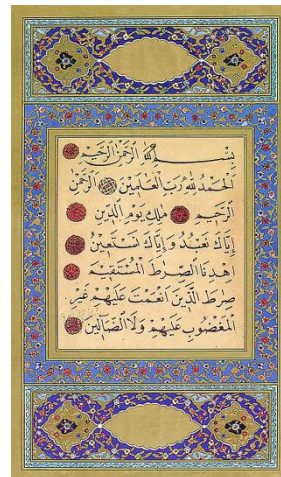 بِسْمِ اللهِ الرَّحْمٰنِ الرَّحِيمِ
اَلْحَمْدُ لِلّٰهِ رَبِّ الْعَالَمِينَ اَلرَّحْمٰنِ
الرَّحِيمِ مَالِكِ يَوْمِ الدِّينِ
اِيَّاكَ نَعْبُدُ وَاِيَّاكَ نَسْتَعِينُ
اِهْدِنَا الصِّرَاطَ الْمُسْتَقِيمَ
صِرَاطَ الَّذِينَ اَنْعَمْتَ عَلَيْهِمْ غَيْرِ
الْمَغْضُوبِ عَلَيْهِمْ وَلَا الضَّالِّينَ